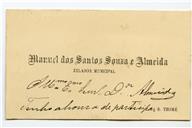 Manuel dos Santos Souza e Almeida
ZELADOR MUNICIPAL
Almeida
Tenho a honra de participar S. THOMÉ